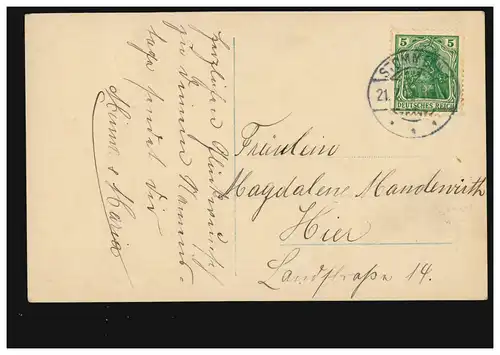 Herzlichen Glückwunsch
zu deinem Namens-
tage sendet dir
Maria
5 5
DEUTSCHES REICH
STOMME
21.
Fräulein
Magdalene Manderwirth
Hier
Landstraße 14.